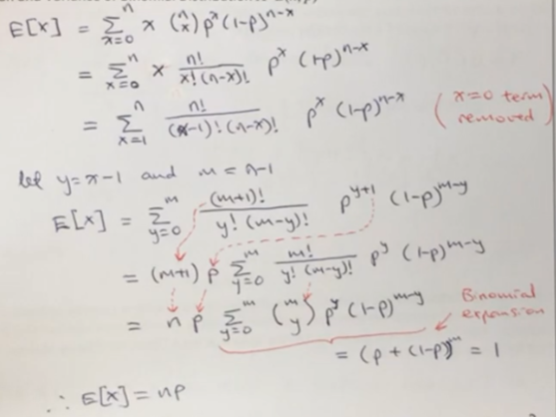 E[X] = Σ_{x=0}^{n} x (n x) p^x (1-p)^{n-x}
= Σ_{x=0}^{n} x n!/(x!(n-x)!) p^x (1-p)^{n-x}
= Σ_{x=1}^{n} n!/((x-1)!(n-x)!) p^x (1-p)^{n-x} (x=0 term removed)
let y=x-1 and m=n-1
E[X] = Σ_{y=0}^{m} (m+1)!/(y!(m-y)!) p^{y+1} (1-p)^{m-y}
= (m+1) p Σ_{y=0}^{m} m!/(y!(m-y)!) p^y (1-p)^{m-y}
= n p Σ_{y=0}^{m} (m y) p^y (1-p)^{m-y} Binomial expansion
= (p + (1-p))^m = 1
∴ E[X] = np